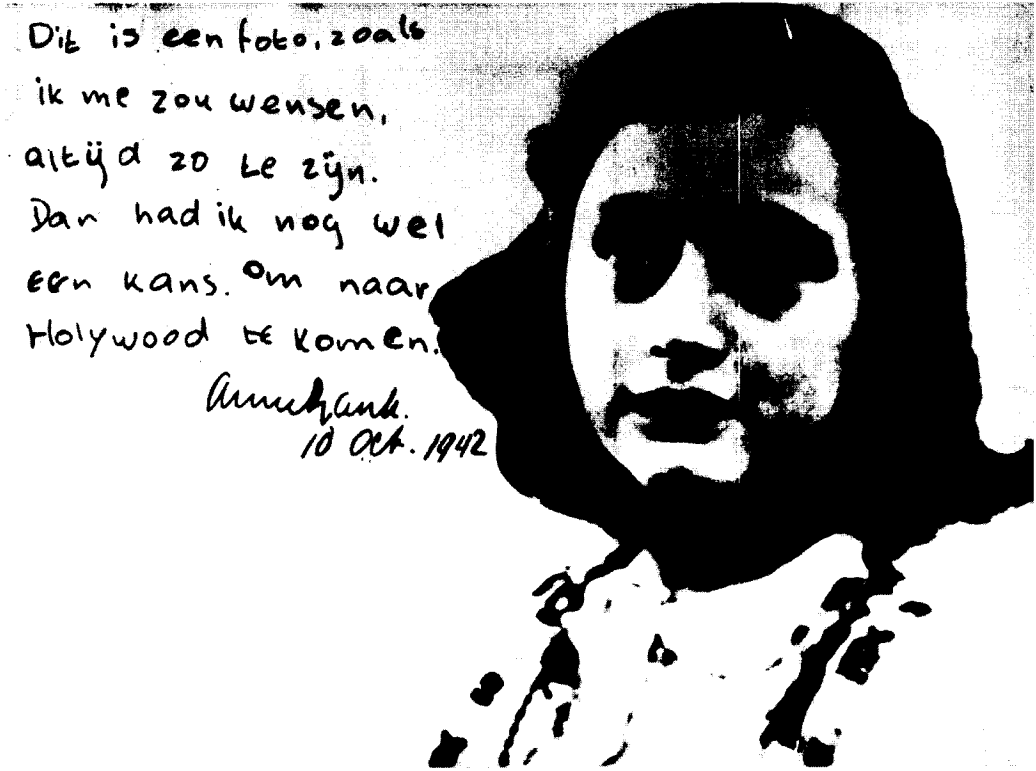 Dit is een foto, zoals
ik me zou wensen,
altijd zo te zijn.
Dan had ik nog wel
een kans. om naar
Holywood te komen.
Annefrank.
10 Oct. 1942